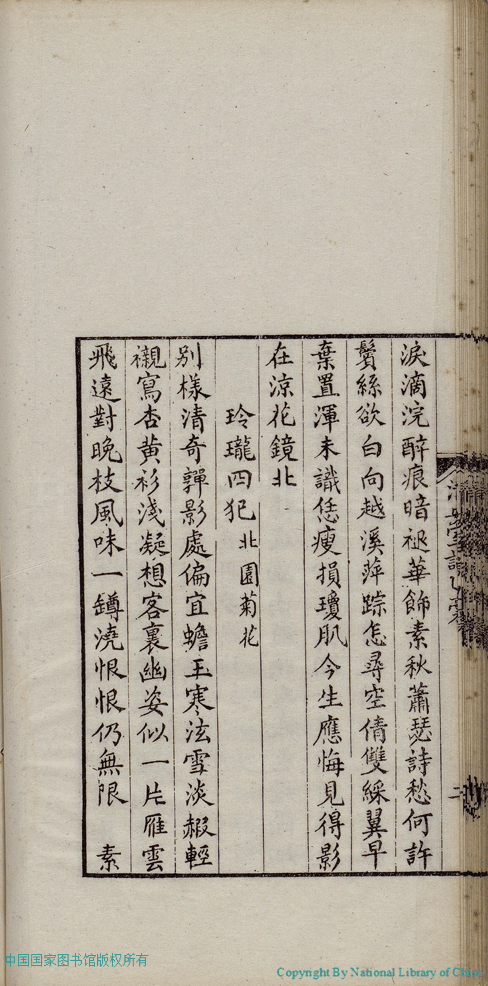 淚滴浣醉痕暗褪華飾素秋蕭瑟詩愁何許
鬢絲欲白向越溪萍踪怎尋空倩雙綵翼早
棄置渾未識恁瘦損瓊肌今生應悔見得影
在涼花鏡北
玲瓏四犯 北園菊花
別樣清奇嚲影處偏宜蟾玉寒泫雪淡霞輕
襯寫杏黃衫淺凝想客裏幽姿似一片雁雲
飛遠對晚枝風味一罇澆恨恨仍無限 素
二
中国国家图书馆版权所有
Copyright By National Library of Chin